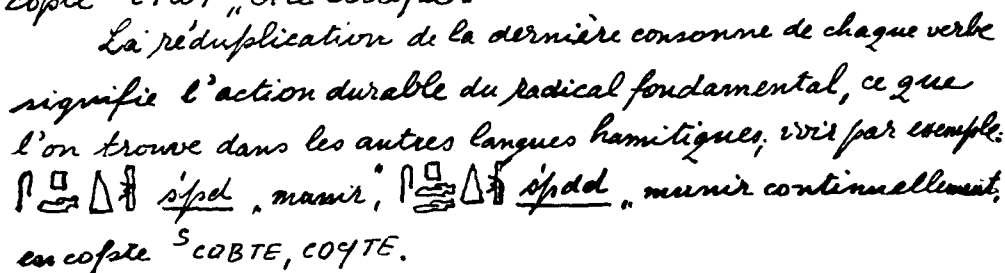 copte
La réduplication de la dernière consonne de chaque verbe
signifie l'action durable du radical fondamental, ce que
l'on trouve dans les autres langues hamitiques; voir par exemple:
śpd „munir", śpdd „munir continuellement",
en copte ˢCOBTE, COϤTE.